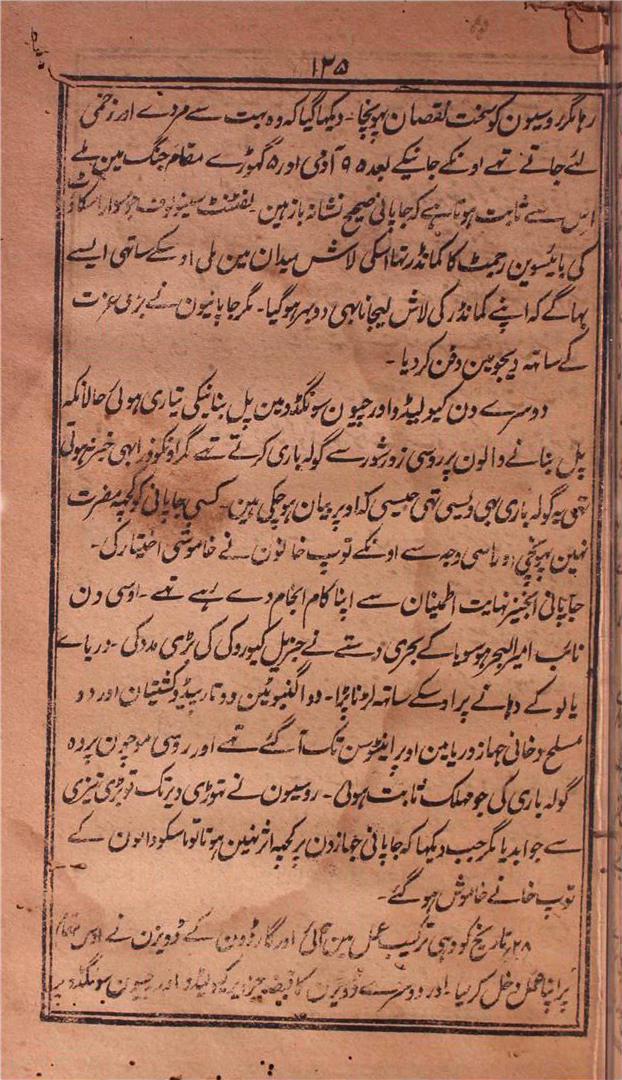 ۱۳۵
رہا مگر روسیون کو سخت نقصان پہونچا ۔ دیکھا گیا کہ وہ بہت سے مردے اور زخمی
لئے جاتے تھے اونکے جانیکے بعد ۹۵ آدمی اور ۵ گھوڑے مقام جنگ مین ملے
اس سے ثابت ہوتا ہے کہ جاپانی صحیح نشانہ باز ہین ۔ لفٹننٹ سمینوف جو سوار اسکاؤٹ
کی بائیسوین رجمنٹ کا کمانڈر تھا اسکی لاش میدان مین ملی اوسکے ساتھی ایسے
بہاگے کہ اپنے کمانڈر کی لاش لیجانا بہی دوبہر ہو گیا ۔ مگر جاپانیون نے بڑی عزت
کے ساتہ دیجو مین دفن کر دیا ۔
دوسرے دن کیولیڈو اور چیون سونگڈو مین پل بنانیکی تیاری ہوئی حالانکہ
پل بنانے والون پر روسی زور شور سے گولہ باری کرتے تہے مگر اونکو ذرا بہی خبر نہوتی
تہی یہ گولہ باری بہی ویسی تہی جیسی کہ اوپر بیان ہو چکی ہین ۔ کسی جاپانی کو کچہ مضرت
نہین پہونچی اور اسی وجہ سے اونکے توپ خانون نے خاموشی اختیار کی ۔
جاپانی انجنیر نہایت اطمینان سے اپنا کام انجام دے رہے تہے ۔ اوسی دن
نائب امیر البحر ہوسویا کے بحری دستے نے جنرل کیوروکی کی بڑی مدد کی ۔ دریاے
یالو کے دہانے پر اوسکے ساتہ لڑنا پڑا ۔ دو اگنبوٹین دو تارپیڈو کشتیان اور دو
مسلح دخانی جہاز دریا مین اوپر اینٹوسن تک آ گئے تہے اور روسی مورچون پر وہ
گولہ باری کی جو مہلک ثابت ہوئی ۔ روسیون نے تہوڑی دیر تک تو بڑی تیزی
سے جواب دیا مگر جب دیکہا کہ جاپانی جہازون پر کچہ اثر نہین ہوتا تو ماسکو والون کے
توپ خانے خاموش ہو گئے ۔
۲۸ تاریخ کو وہی ترکیب عمل مین آئی اور گارڈون کے ڈویزن نے اوس مقام
پر اپنا عمل دخل کر لیا ۔ اور دوسرے ڈویزن کا قبضہ جزیرہ کیولیڈو اور چیون سونگڈو پر